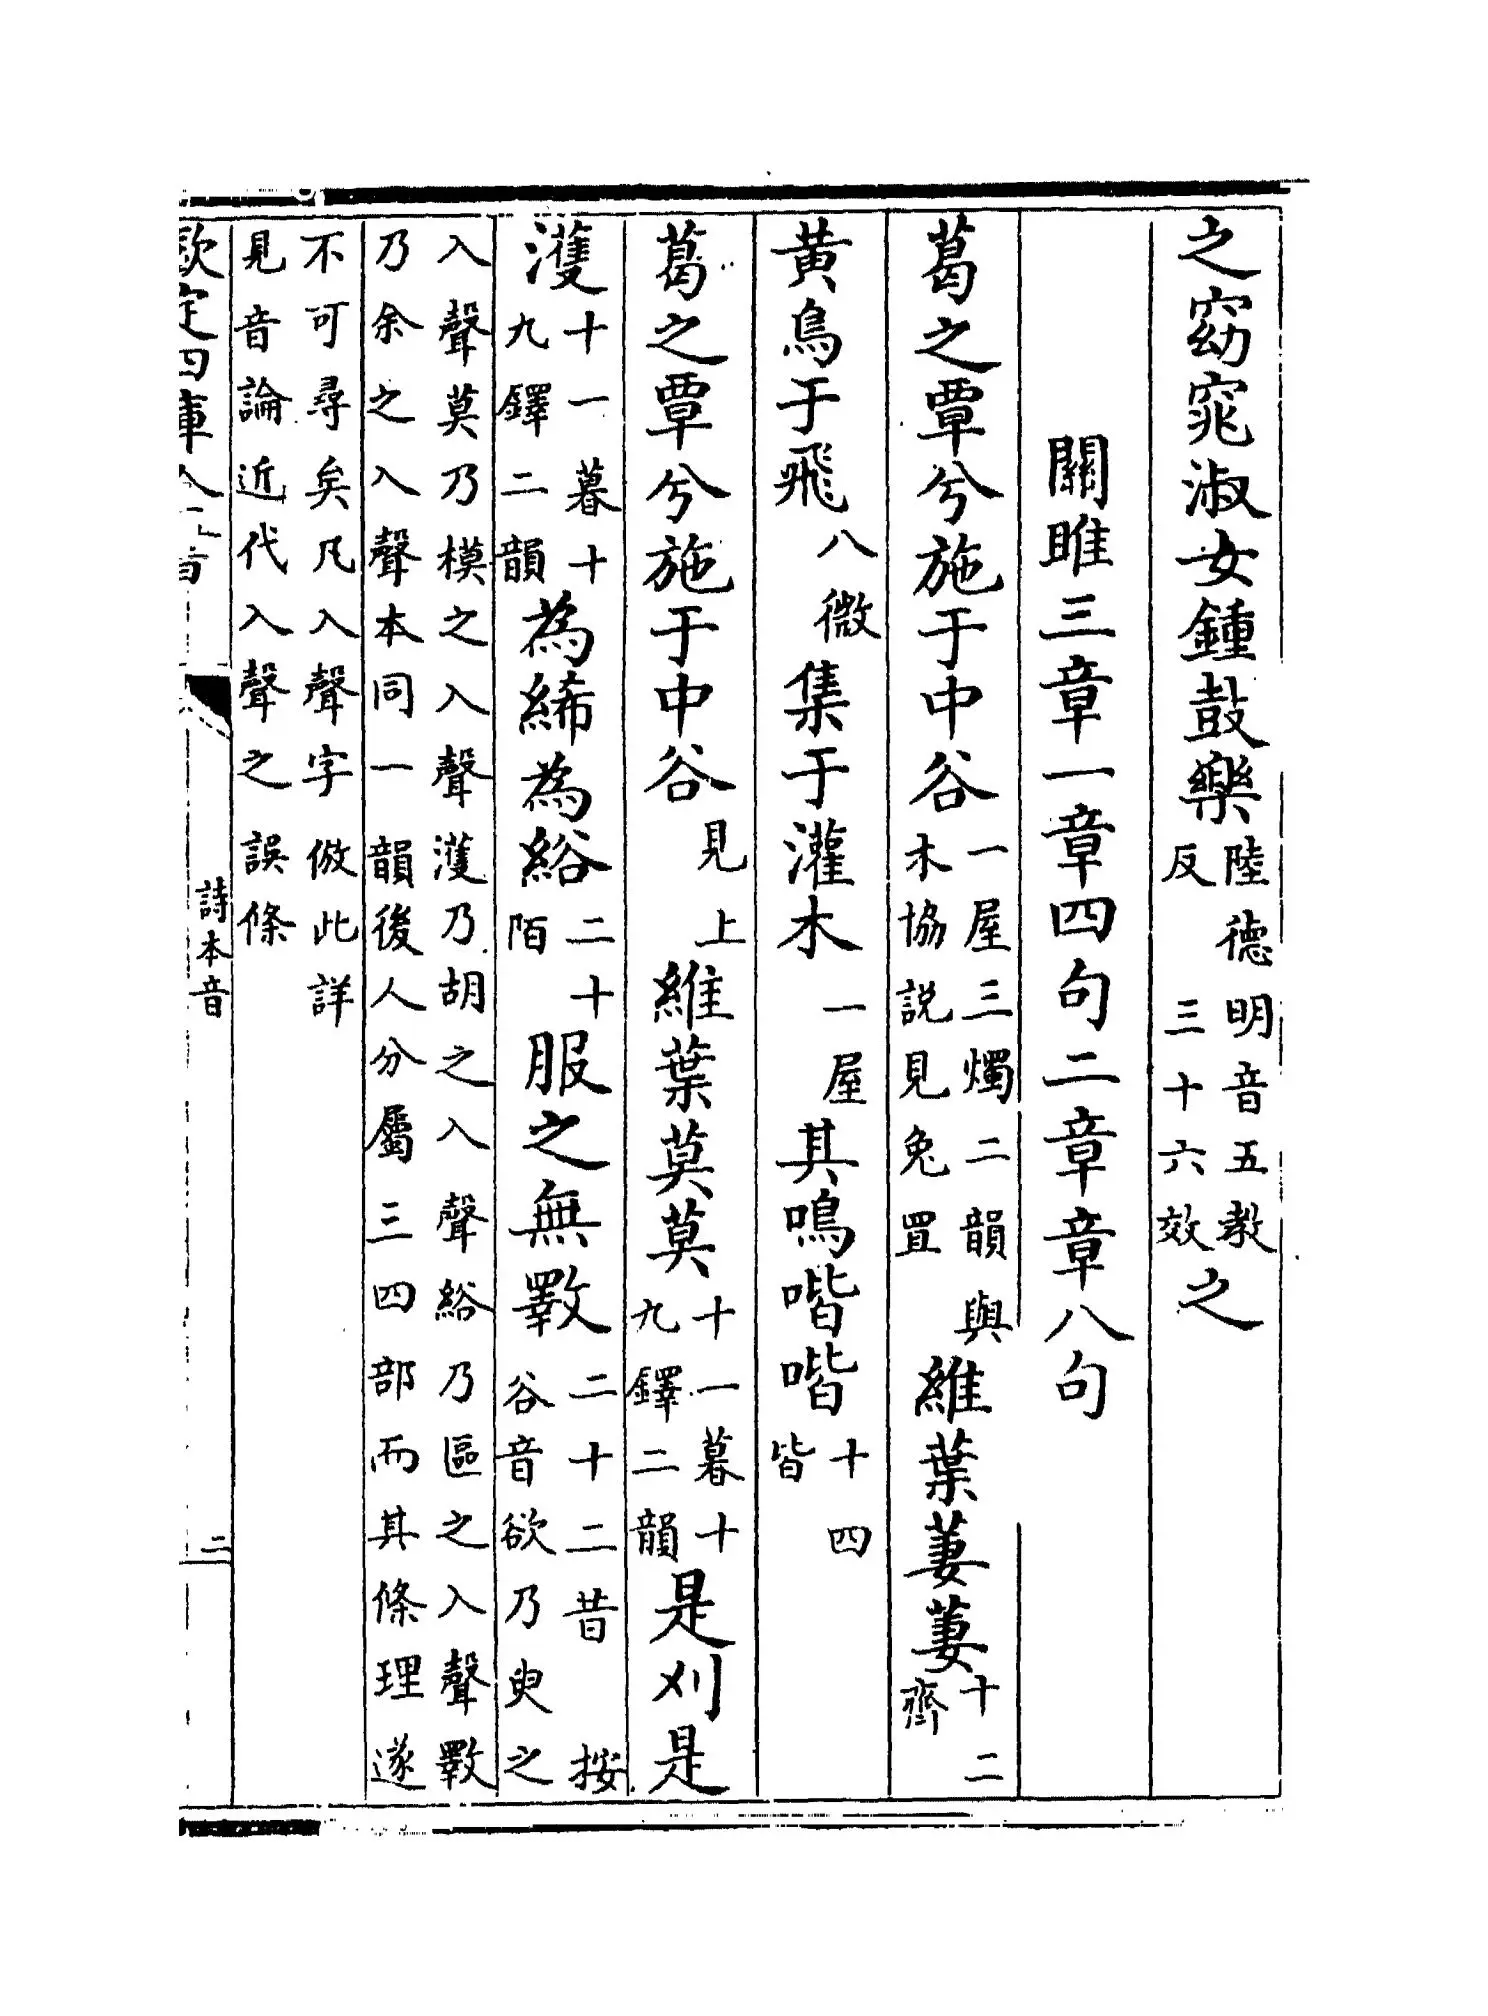 之窈窕淑女鍾鼓樂陸德明音五教反三十六效之
關雎三章一章四句二章章八句
葛之覃兮施于中谷一屋三燭二韻與木協說見兔罝維葉萋萋十二齊
黄鳥于飛八微集于灌木一屋其鳴喈喈十四皆
葛之覃兮施于中谷見上維葉莫莫十一暮十九鐸二韻是刈是
濩十一暮十九鐸二韻為絺為綌二十陌服之無斁二十二昔按谷音欲乃臾之
入聲莫乃模之入聲濩乃胡之入聲綌乃區之入聲斁
乃余之入聲本同一韻後人分屬三四部而其條理遂
不可尋矣凡入聲字倣此詳
見音論近代入聲之誤條
欽定四庫全書
詩本音
二